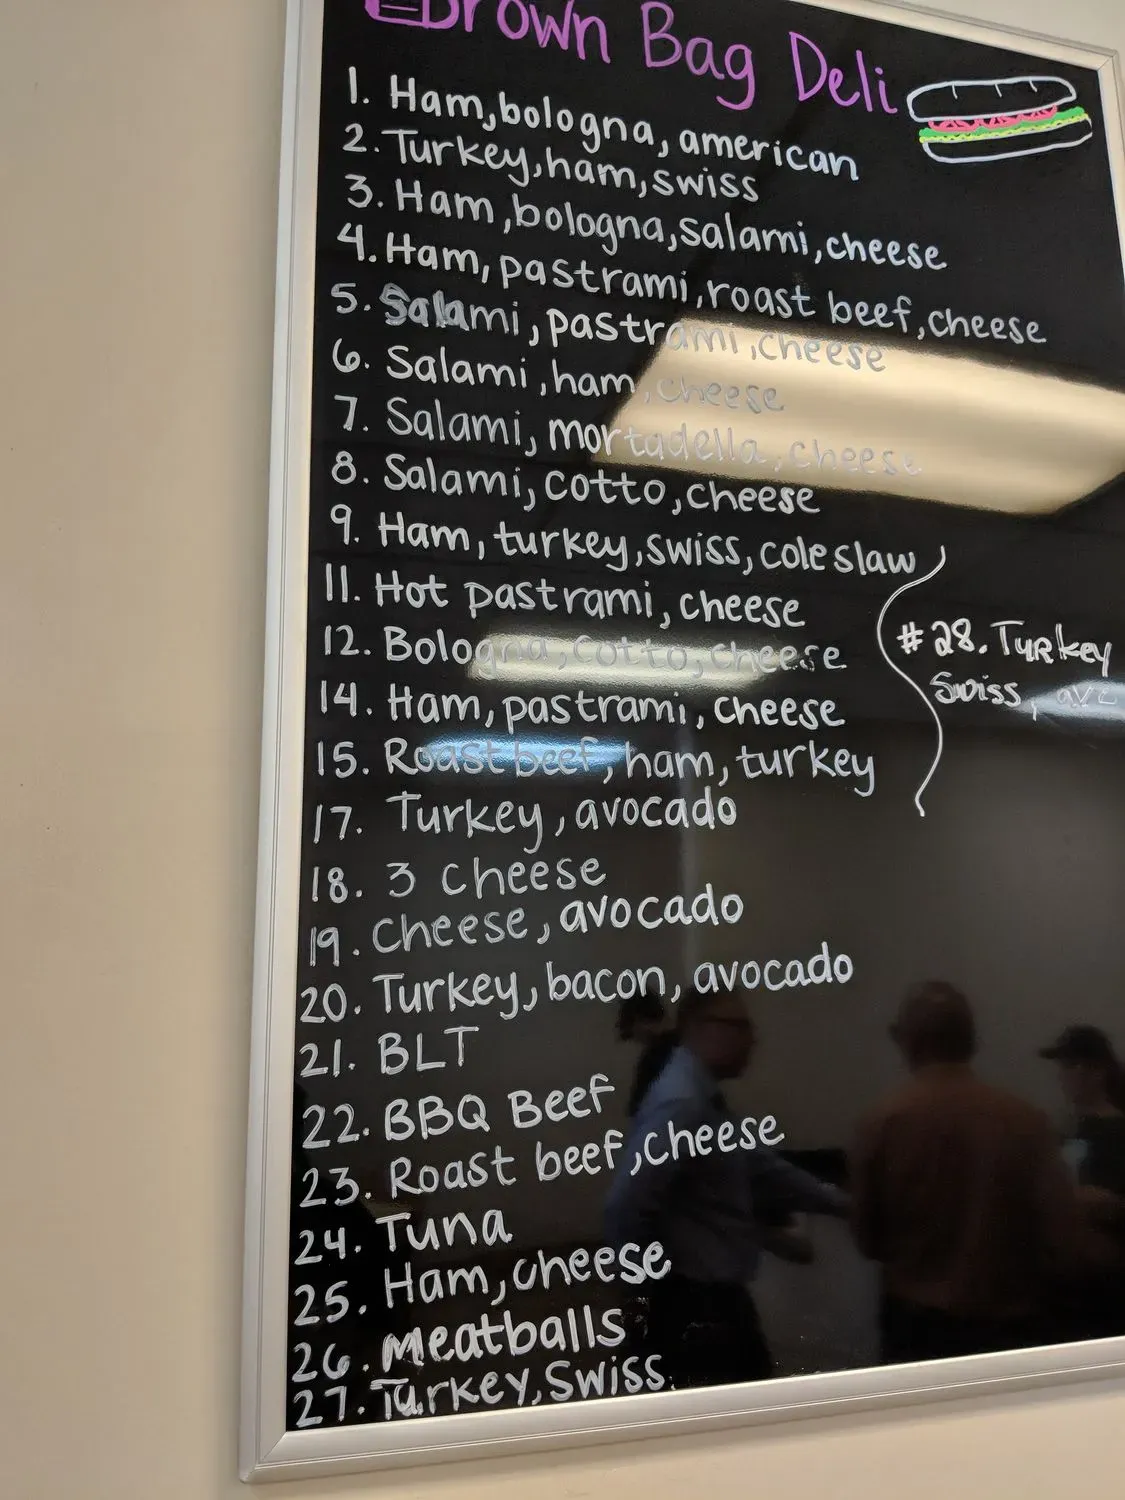 Brown Bag Deli
1. Ham, bologna, american
2. Turkey, ham, swiss
3. Ham, bologna, salami, cheese
4. Ham, pastrami, roast beef, cheese
5. Salami, pastrami, cheese
6. Salami, ham, cheese
7. Salami, mortadella, cheese
8. Salami, cotto, cheese
9. Ham, turkey, swiss, coleslaw
11. Hot pastrami, cheese
12. Bologna, cotto, cheese
14. Ham, pastrami, cheese
15. Roast beef, ham, turkey
17. Turkey, avocado
18. 3 cheese
19. Cheese, avocado
20. Turkey, bacon, avocado
21. BLT
22. BBQ Beef
23. Roast beef, cheese
24. Tuna
25. Ham, cheese
26. Meatballs
27. Turkey, Swiss
#28. Turkey
Swiss,